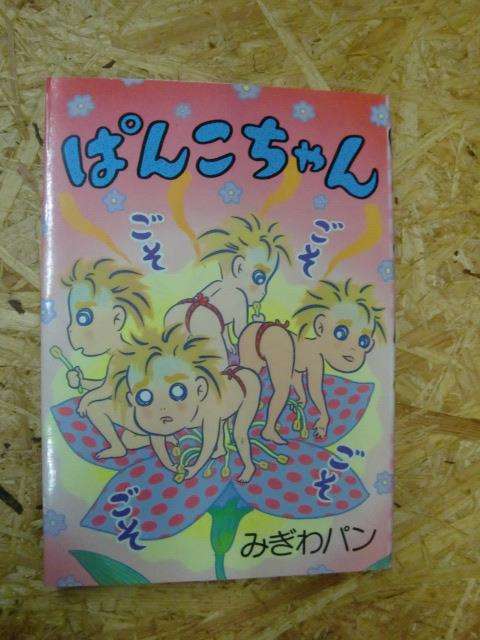 ぱんこちゃん
ごそ
ごそ
ごそ
ごそ
みぎわパン